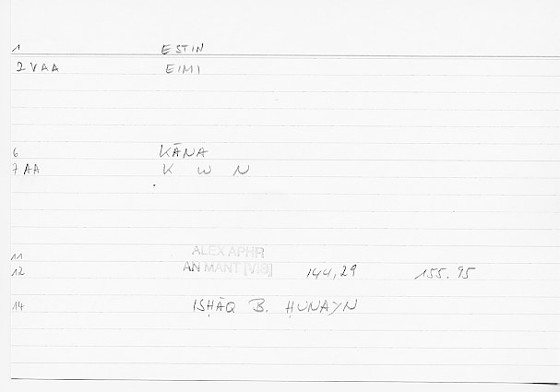 1 ESTIN
2 VAA EIMI
6 KĀNA
7 AA K W N
11 ALEX APHR
12 AN MANT [VIB] 144,29 155.95
14 ISḤĀQ B. ḤUNAYN